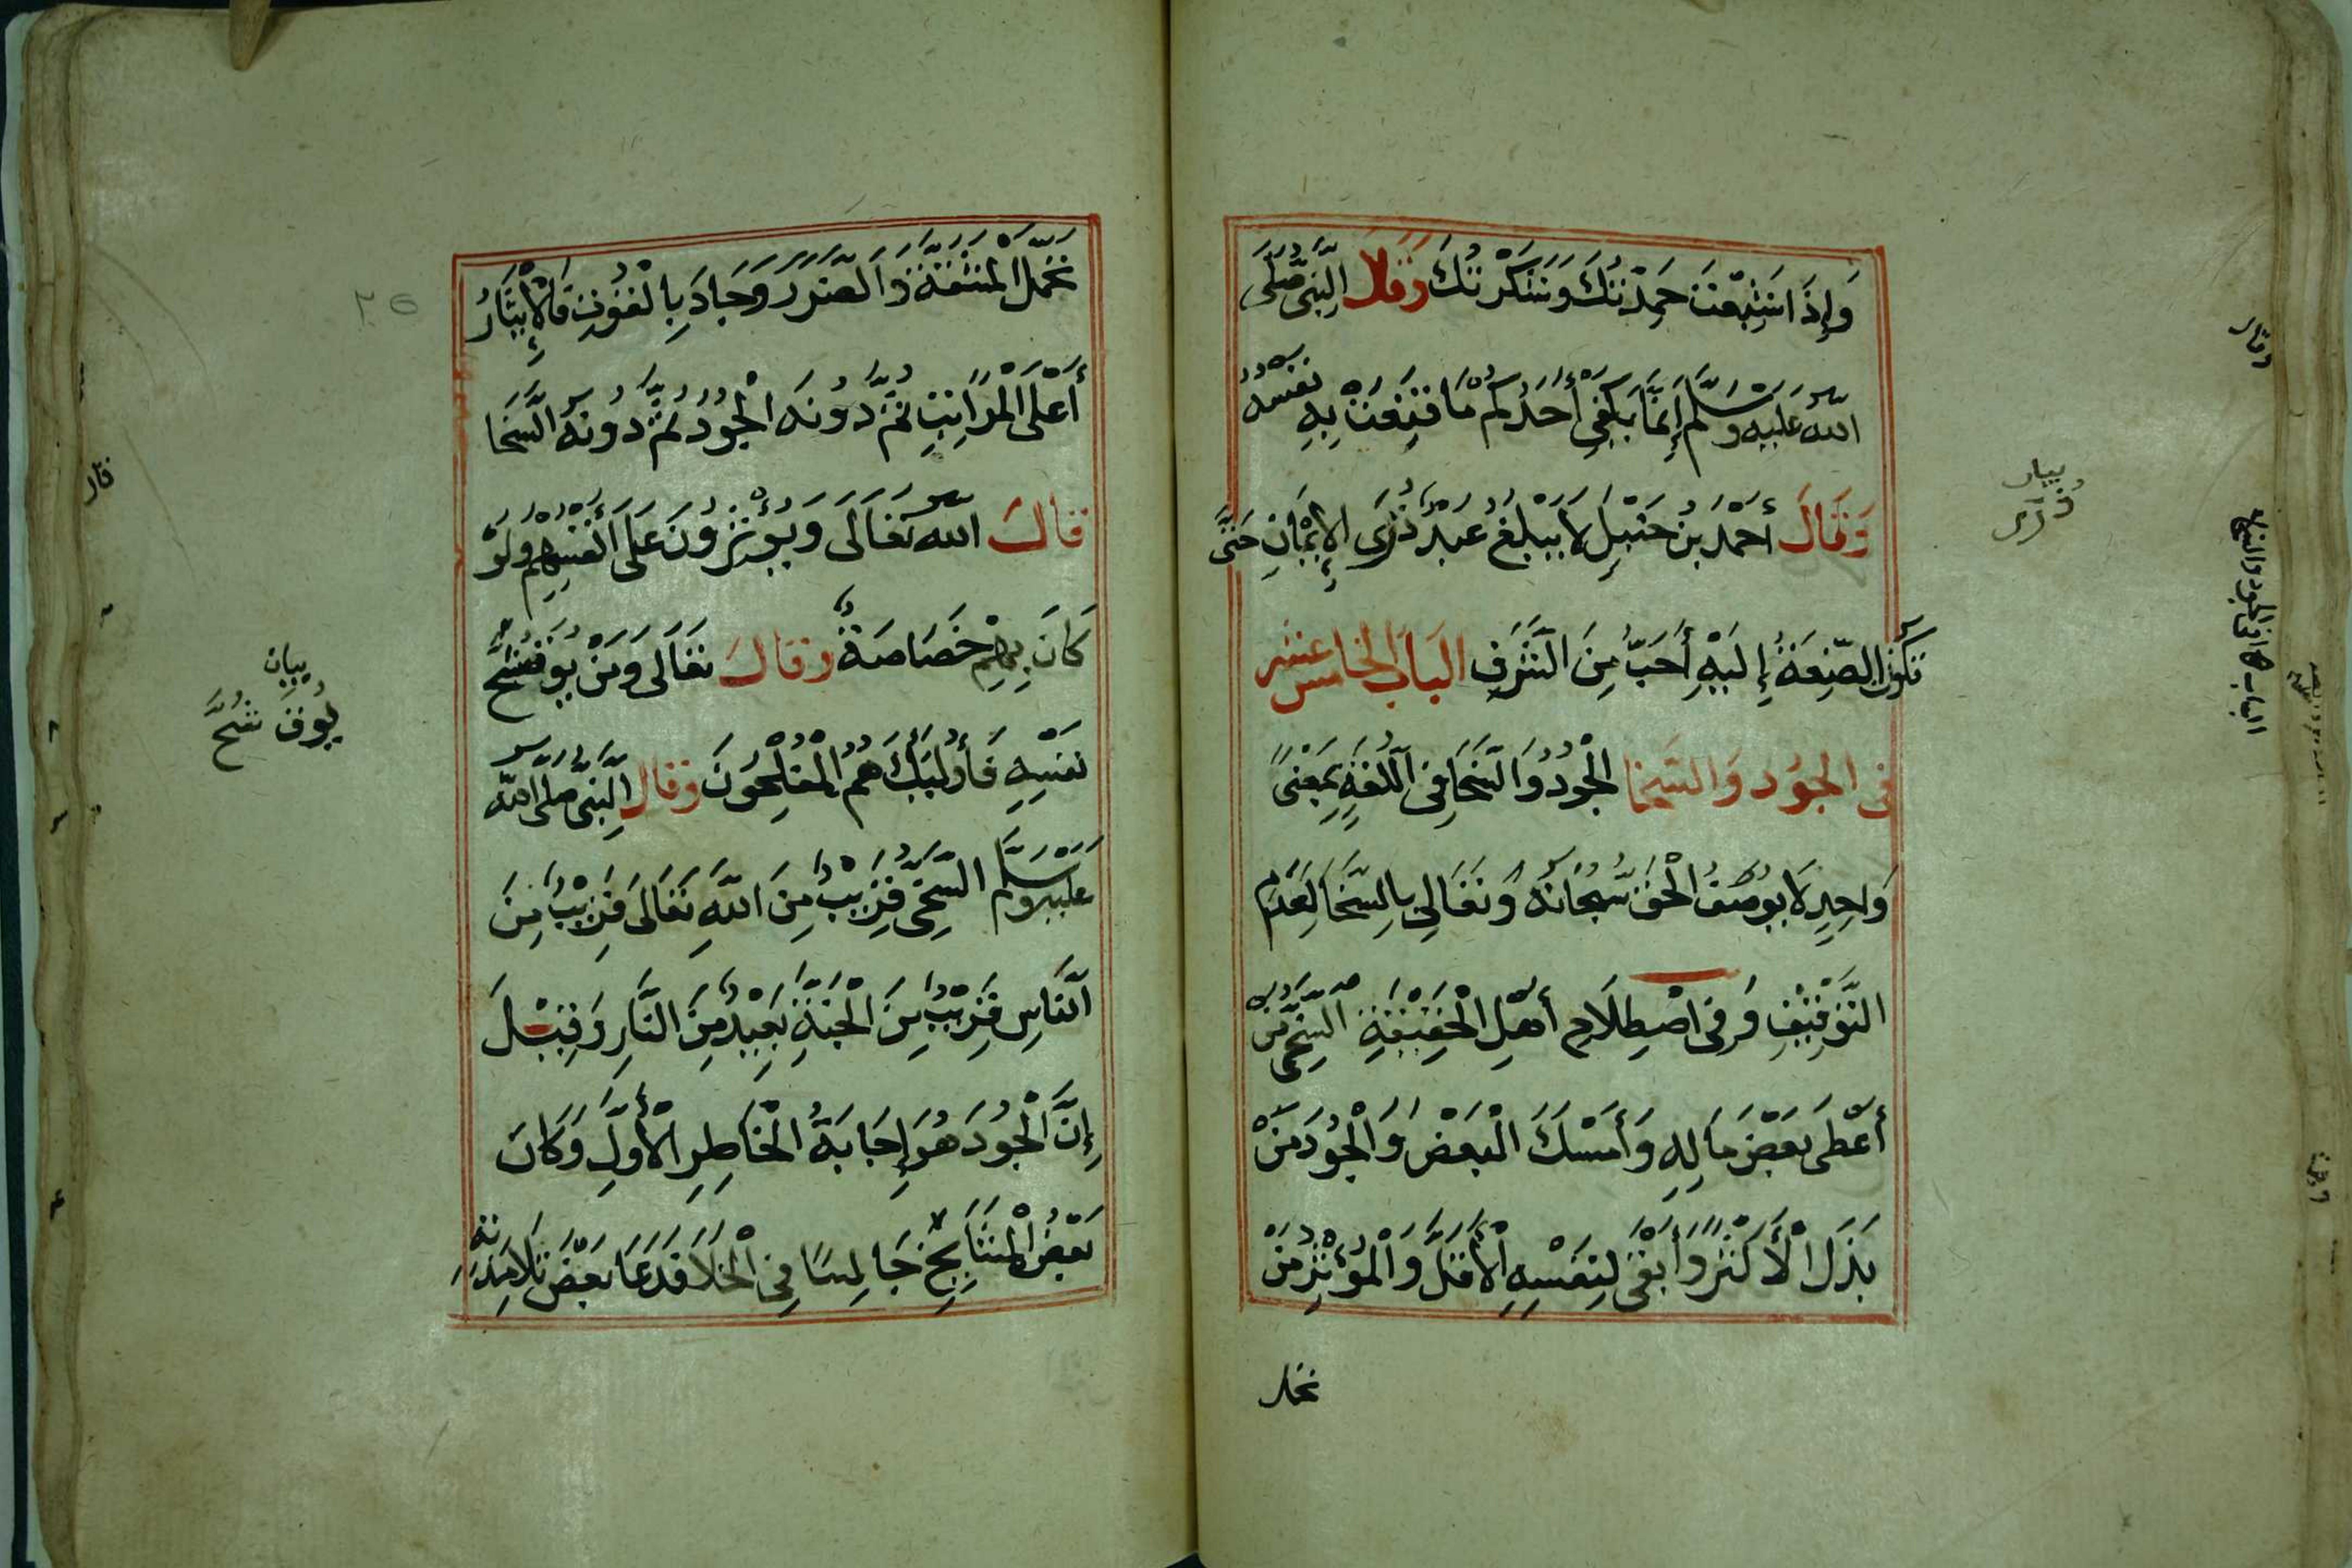 وَإِذَا شَبِعْتُ حَمِدْتُكَ وَشَكَرْتُكَ وَقَالَ النَّبِيُّ صَلَّى
اللّٰهُ عَلَيْهِ وَسَلَّمَ إِنَّمَا يَكْفِي أَحَدَكُمْ مَا قَنِعَتْ بِهِ نَفْسُهُ
وَقَالَ أَحْمَدُ بْنُ حَنْبَلٍ لَا يَبْلُغُ عَبْدٌ ذُرَى الْإِيمَانِ حَتَّى
تَكُونَ الضِّعَةُ إِلَيْهِ أَحَبَّ مِنَ الشَّرَفِ الْبَابُ الْخَامِسُ عَشَر
فِي الْجُودِ وَالسَّخَا الْجُودُ وَالسَّخَا فِي اللُّغَةِ بِمَعْنًى
وَاحِدٍ لَا يُوصَفُ الْحَقُّ سُبْحَانَهُ وَتَعَالَى بِالسَّخَا لِعَدَمِ
التَّوْقِيفِ وَفِي اصْطِلَاحِ أَهْلِ الْحَقِيقَةِ السَّخِيُّ مَنْ
أَعْطَى بَعْضَ مَالِهِ وَأَمْسَكَ الْبَعْضَ وَالْجُودُ مَنْ
بَذَلَ الْأَكْثَرَ وَأَبْقَى لِنَفْسِهِ الْأَقَلَّ وَالْمُؤْثِرُ مَنْ
تحمل
بيان
ذرى
الباب ١٥ في الجود والسخا
تَحَمَّلَ الْمَشَقَّةَ وَالضَّرَرَ وَجَادَ بِالْقُوتِ فَالْإِيثَارُ
أَعْلَى الْمَرَاتِبِ ثُمَّ دُونَهُ الْجُودُ ثُمَّ دُونَهُ السَّخَا
قَالَ اللّٰهُ تَعَالَى وَيُؤْثِرُونَ عَلَى أَنْفُسِهِمْ وَلَوْ
كَانَ بِهِمْ خَصَاصَةٌ وَقَالَ تَعَالَى وَمَنْ يُوقَ شُحَّ
نَفْسِهِ فَأُولَئِكَ هُمُ الْمُفْلِحُونَ وَقَالَ النَّبِيُّ صَلَّى اللّٰهُ
عَلَيْهِ وَسَلَّمَ السَّخِيُّ قَرِيبٌ مِنَ اللّٰهِ تَعَالَى قَرِيبٌ مِنَ
النَّاسِ قَرِيبٌ مِنَ الْجَنَّةِ بَعِيدٌ مِنَ النَّارِ وَقِيلَ
إِنَّ الْجُودَ هُوَ إِجَابَةُ الْخَاطِرِ الْأَوَّلِ وَكَانَ
بَعْضُ الْمَشَايِخِ جَالِسًا فِي الْخَلَا فَدَعَا بَعْضَ تَلَامِذَتِهِ
بيان
يُوقَ شُحَّ
٣٥